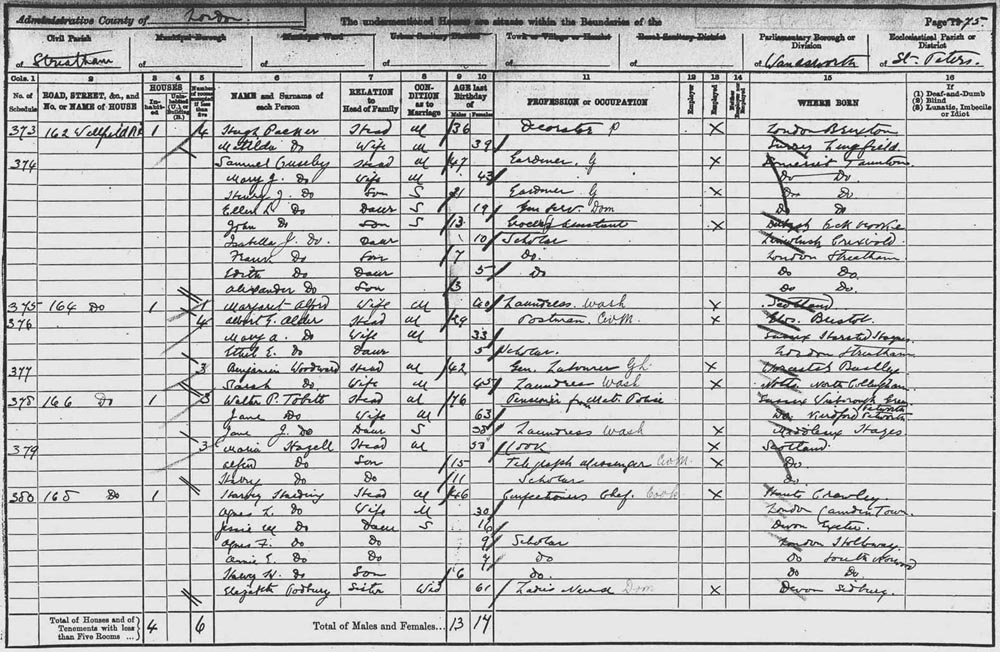 Administrative County of London.
The undermentioned Houses are situate within the Boundaries of the
Page 75.
Civil Parish
of Streatham
Municipal Borough
of
Municipal Ward
of
Urban Sanitary District
of
Town or Village or Hamlet
of
Rural Sanitary District
of
Parliamentary Borough or Division
of Wandsworth
Ecclesiastical Parish or District
of St. Peters.
Cols. 1 2 3 4 5 6 7 8 9 10 11 12 13 14 15 16
No. of Schedule
ROAD, STREET, &c., and No. or NAME of HOUSE
HOUSES
Inhabited
Uninhabited (U.) or Building (B.)
Number of rooms occupied if less than five
NAME and Surname of each Person
RELATION to Head of Family
CONDITION as to Marriage
AGE last Birthday of
Males Females
PROFESSION or OCCUPATION
Employer
Employed
Neither Employer nor Employed
WHERE BORN
If
(1) Deaf-and-Dumb
(2) Blind
(3) Lunatic, Imbecile or Idiot
373 162 Wellfield Rd 1 4 Hugh Packer Head M 36 Decorator P X London Brixton
Matilda Do Wife M 39 Surrey Lingfield
374 Samuel Head M 47 Gardiner G X Somerset Taunton
Mary J. Do Wife M 43 Do Do
Henry J. Do Son S 21 Gardner G X Do Do
Ellen L. Do Daur S 19 Gen Serv. Dom Do Do
John Do Son S 13 Grocer's Assistant X
Isabella J. Do. Daur 10 Scholar
Frank Do Son 7 Do. London Streatham
Edith Do Daur 5 Do Do Do.
Alexander Do Son 3 Do Do
375 164 Do 1 1 Margaret Alford Wife M 40 Laundress. Wash X Scotland
376 4 Albert E. Alder Head M 29 Postman. CivM. X Glos. Bristol
Mary A. Do Wife M 33 Sussex Horsted Keynes
Ethel E. Do Daur 5 Scholar. London Streatham
377 3 Benjamin Woodward Head M 42 Gen. Labourer GL X
Sarah Do Wife M 45 Laundress Wash X Notts. North Collingham
378 166 Do 1 3 Walter P. Head M 76 Pensioner from Met. Police Sussex Wisborough Green
Jane Do Wife M 63 Do. Kirdford Petworth
Jane J. Do Daur S 38 Laundress Wash X Middlesex Hayes
379 3 Maria Hazell Head M 38 Cook X Scotland
Alfred Do Son 15 Telegraph Messenger CivM. X Do.
Harry Do Do 11 Scholar Do.
380 168 Do 1 Harvey Harding Head M 46 Confectioners Chef. Cook X Hants Crawley.
Agnes L. Do Wife M 30 London Camden Town.
Jessie M Do Daur S 16 Devon Exeter.
Agnes F. Do Do 9 Scholar London Holloway.
Annie E. Do Do 7 Do Do South Norwood
Harvey W. Do Son 6 Do. Do Do.
Elizabeth Sister Wid 61 Ladies Nurse Dom X Devon Sidbury.
Total of Houses and of Tenements with less than Five Rooms ... 4 6
Total of Males and Females... 13 17